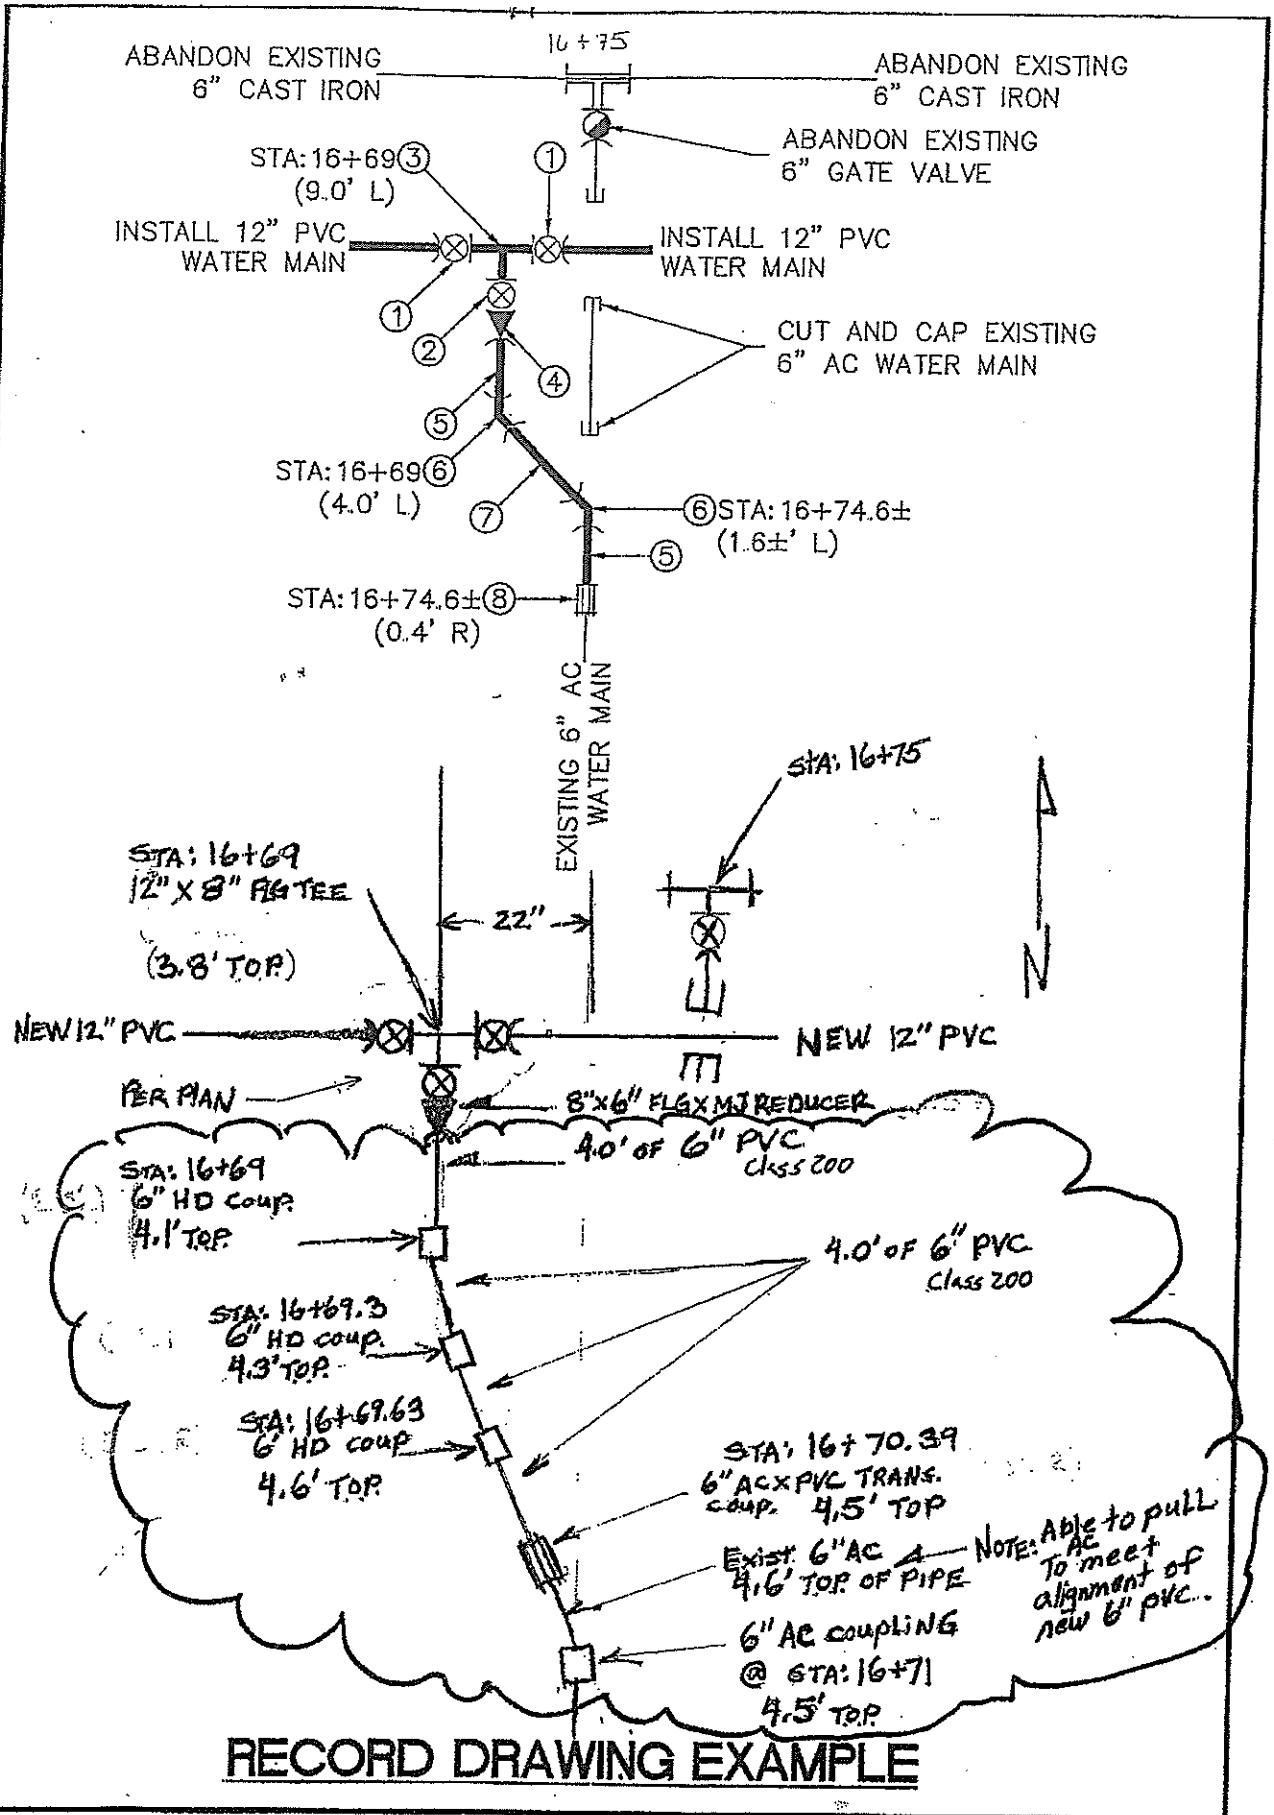 16+75
ABANDON EXISTING
6" CAST IRON
ABANDON EXISTING
6" CAST IRON
ABANDON EXISTING
6" GATE VALVE
STA: 16+69 3
(9.0' L)
1
INSTALL 12" PVC
WATER MAIN
INSTALL 12" PVC
WATER MAIN
1
2
4
CUT AND CAP EXISTING
6" AC WATER MAIN
5
STA: 16+69 6
(4.0' L)
7
6 STA: 16+74.6±
(1.6±' L)
5
STA: 16+74.6± 8
(0.4' R)
EXISTING 6" AC
WATER MAIN
STA: 16+75
STA: 16+69
12" X 8" FLG TEE
(3.8' TOP)
22"
N
NEW 12" PVC
NEW 12" PVC
PER PLAN
8"X6" FLGXMJ REDUCER
4.0' OF 6" PVC
Class 200
STA: 16+69
6" HD COUP.
4.1' TOP.
4.0' OF 6" PVC
Class 200
STA: 16+69.3
6" HD COUP.
4.3' TOP.
STA: 16+69.63
6' HD COUP
4.6' TOP.
STA: 16+70.39
6" ACXPVC TRANS.
COUP. 4.5' TOP
EXIST. 6" AC
4.6' TOP. OF PIPE
NOTE: Able to pull
AC
To meet
alignment of
new 6" PVC.
6" AC COUPLING
@ STA: 16+71
4.5' TOP.
RECORD DRAWING EXAMPLE